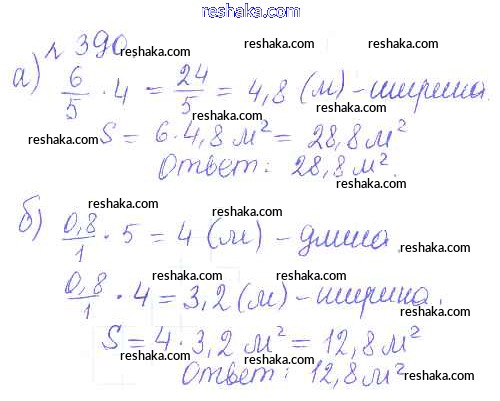 reshaka.com
№ 390
reshaka.com reshaka.com
а) 6/5 · 4 = 24/5 = 4,8 (м) - ширина.
reshaka.com reshaka.com reshaka.com
S = 6 · 4,8 м² = 28,8 м²
reshaka.com reshaka.com
Ответ: 28,8 м².
reshaka.com reshaka.com
б) 0,8/1 · 5 = 4 (м) - длина
reshaka.com reshaka.com
0,8/1 · 4 = 3,2 (м) - ширина.
reshaka.com reshaka.com
S = 4 · 3,2 м² = 12,8 м²
reshaka.com reshaka.com
Ответ: 12,8 м²
reshaka.com reshaka.com